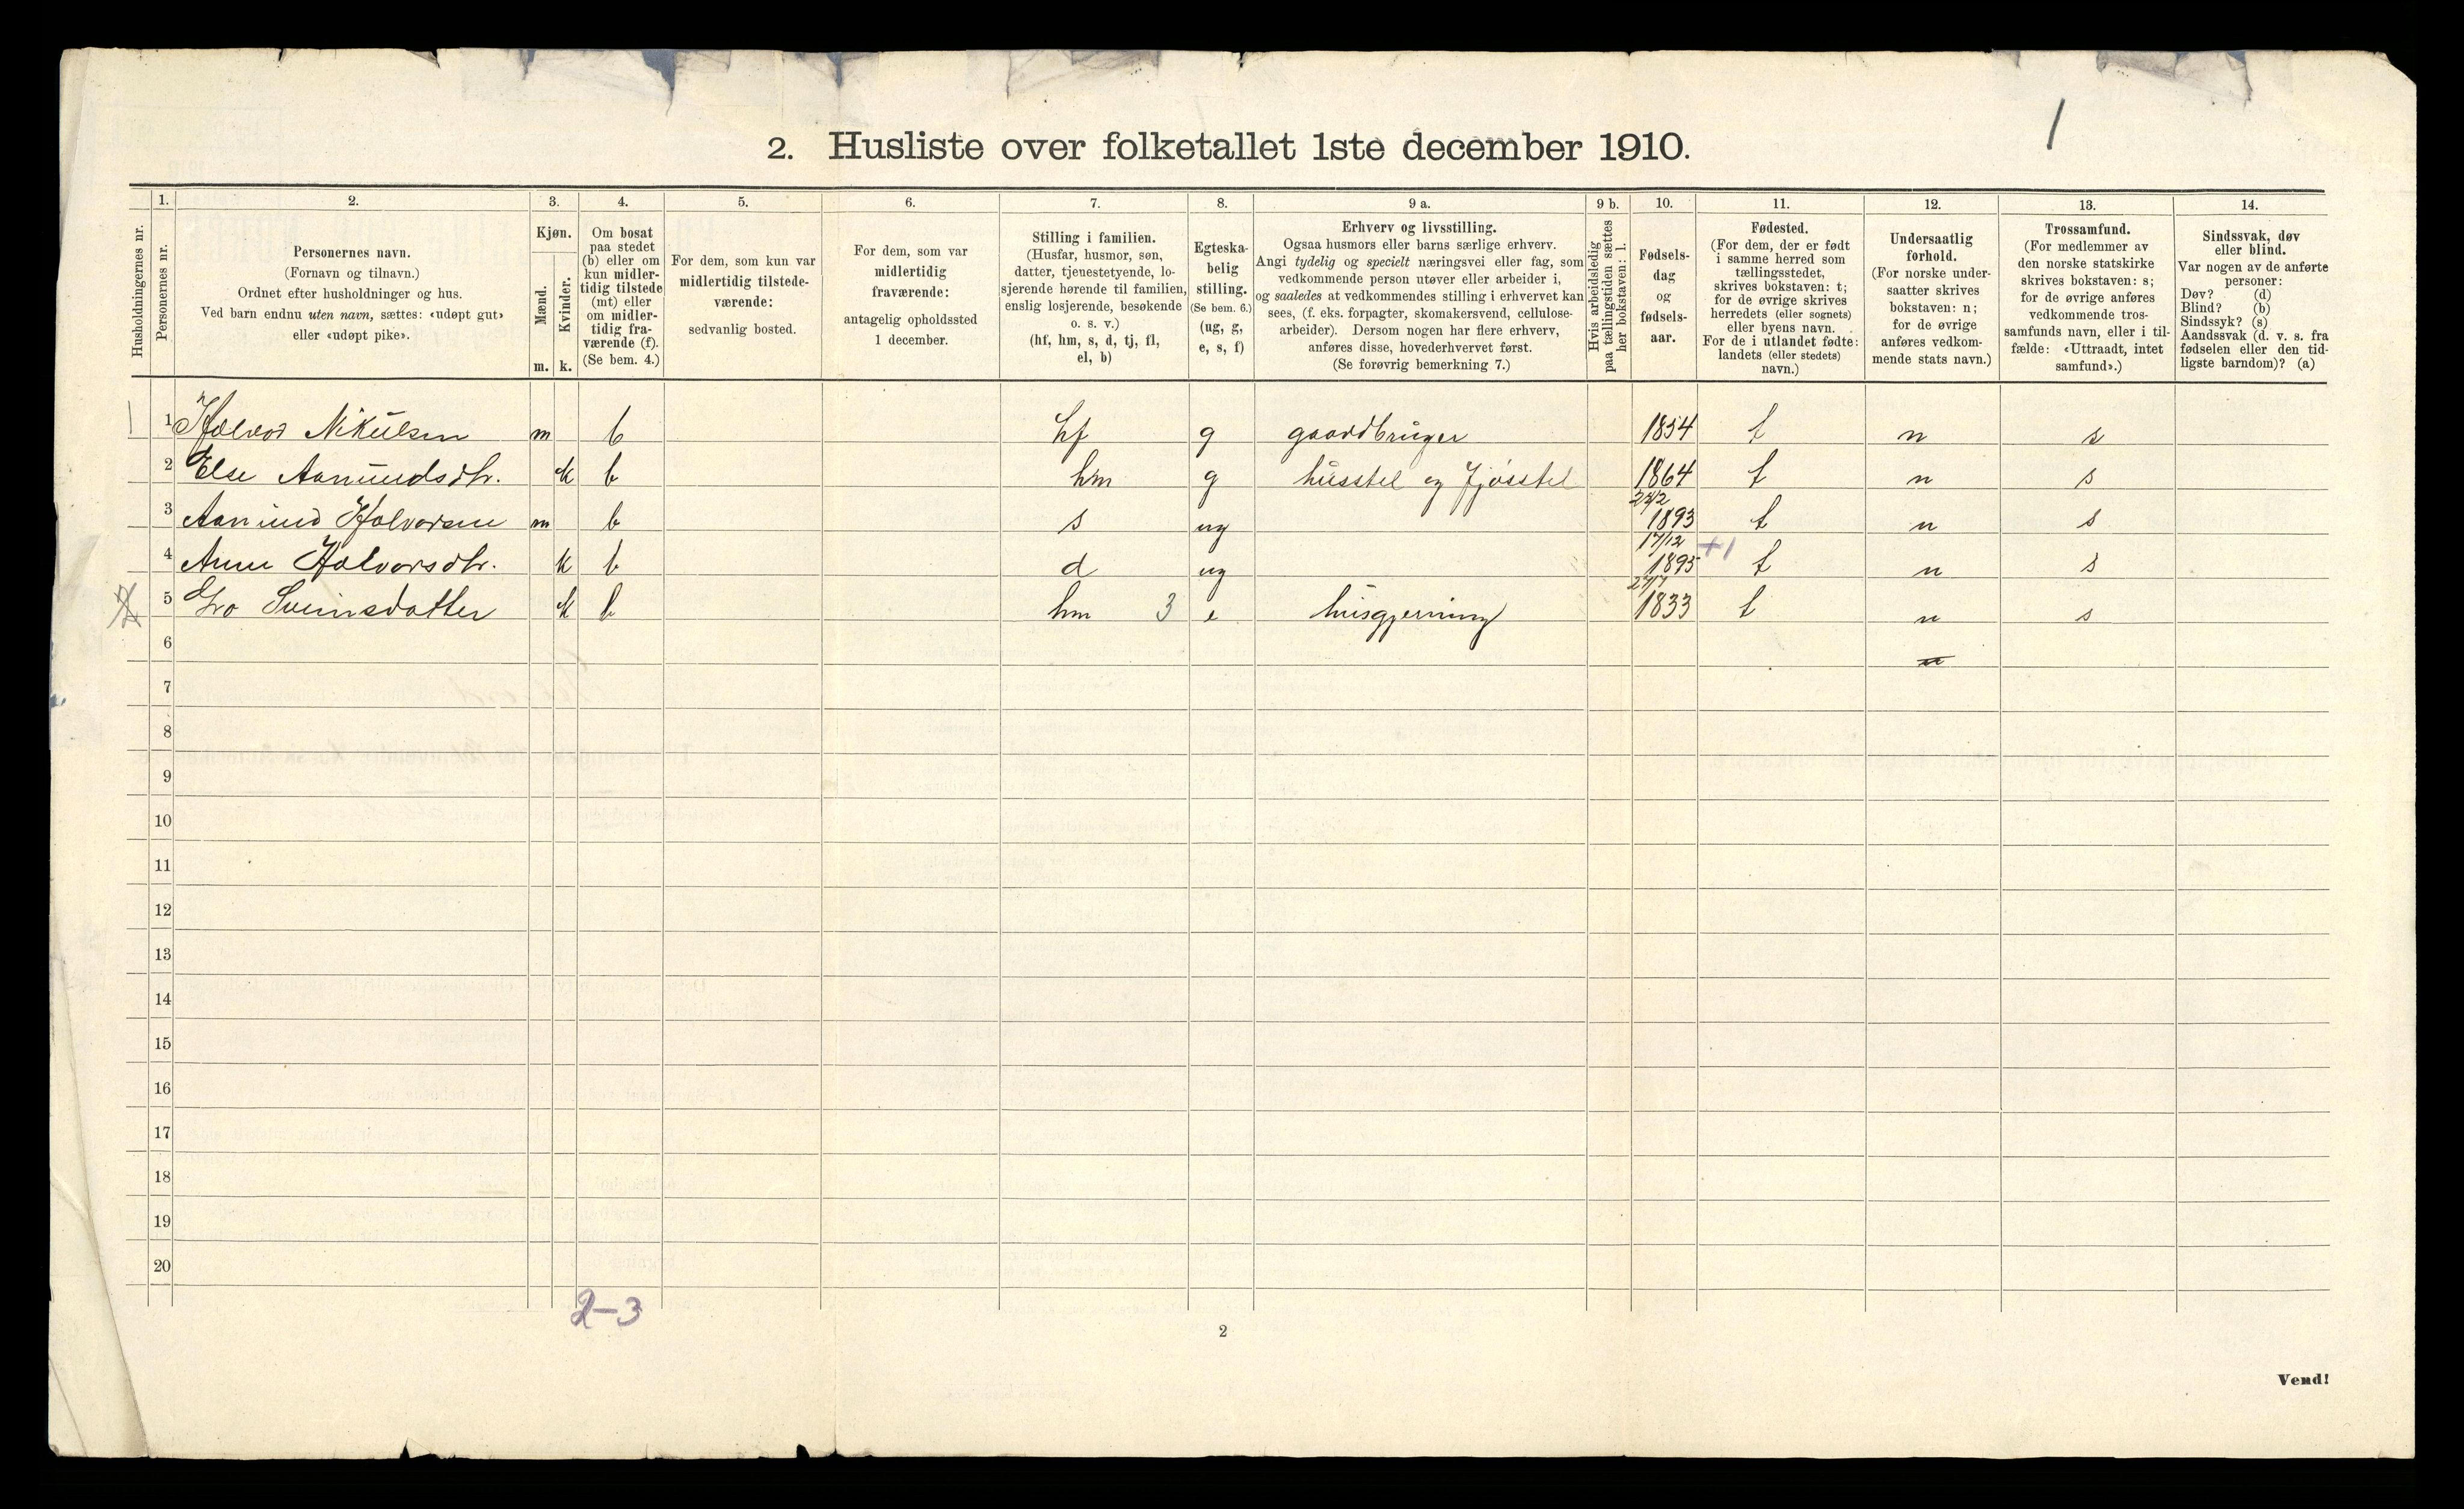 1
2. Husliste over folketallet 1ste december 1910.
Husholdningernes nr.
1.
Personernes nr.
2.
Personernes navn.
(Fornavn og tilnavn.)
Ordnet efter husholdninger og hus.
Ved barn endnu uten navn, sættes: «udøpt gut»
eller «udøpt pike».
3.
Kjøn.
Mænd.
Kvinder.
m. k.
4.
Om bosat
paa stedet
(b) eller om
kun midler-
tidig tilstede
(mt) eller
om midler-
tidig fra-
værende (f).
(Se bem. 4.)
5.
For dem, som kun var
midlertidig tilstede-
værende:
sedvanlig bosted.
6.
For dem, som var
midlertidig
fraværende:
antagelig opholdssted
1 december.
7.
Stilling i familien.
(Husfar, husmor, søn,
datter, tjenestetyende, lo-
sjerende hørende til familien,
enslig losjerende, besøkende
o. s. v.)
(hf, hm, s, d, tj, fl,
el, b)
8.
Egteska-
belig
stilling.
(Se bem. 6.)
(ug, g,
e, s, f)
9 a.
Erhverv og livsstilling.
Ogsaa husmors eller barns særlige erhverv.
Angi tydelig og specielt næringsvei eller fag, som
vedkommende person utøver eller arbeider i,
og saaledes at vedkommendes stilling i erhvervet kan
sees, (f. eks. forpagter, skomakersvend, cellulose-
arbeider). Dersom nogen har flere erhverv,
anføres disse, hovederhvervet først.
(Se forøvrig bemerkning 7.)
9 b.
Hvis arbeidsledig
paa tællingstiden sættes
her bokstaven: l.
10.
Fødsels-
dag
og
fødsels-
aar.
11.
Fødested.
(For dem, der er født
i samme herred som
tællingsstedet,
skrives bokstaven: t;
for de øvrige skrives
herredets (eller sognets)
eller byens navn.
For de i utlandet fødte:
landets (eller stedets)
navn.)
12.
Undersaatlig
forhold.
(For norske under-
saatter skrives
bokstaven: n;
for de øvrige
anføres vedkom-
mende stats navn.)
13.
Trossamfund.
(For medlemmer av
den norske statskirke
skrives bokstaven: s;
for de øvrige anføres
vedkommende tros-
samfunds navn, eller i til-
fælde: «Uttraadt, intet
samfund».)
14.
Sindssvak, døv
eller blind.
Var nogen av de anførte
personer:
Døv? (d)
Blind? (b)
Sindssyk? (s)
Aandssvak (d. v. s. fra
fødselen eller den tid-
ligste barndom)? (a)
1 1 Halvor Nikulsen m b hf g gaardbruger 1854 t n s
2 Else Aamundsdtr. k b hm g husstel og fjøsstel 1864 t n s
3 Aamund Halvorsen m b s ug 24/2 1893 t n s
4 Anne Halvorsdtr. k b d ug 17/12 1895 +1 t n s
2 5 Gro Sveinsdatter k b hm 3 e husgjerning 27/7 1833 t n s
6 n
7
8
9
10
11
12
13
14
15
16
17
18
19
20
2-3
2
Vend!